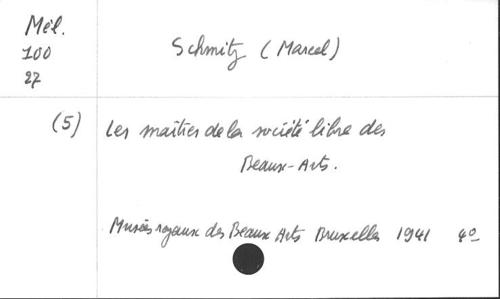 Mél.
100
27
Schmitz (Marcel)
(5) Les maîtres de la société libre des
Beaux-Arts.
Musées royaux des Beaux Arts Bruxelles 1941 4º